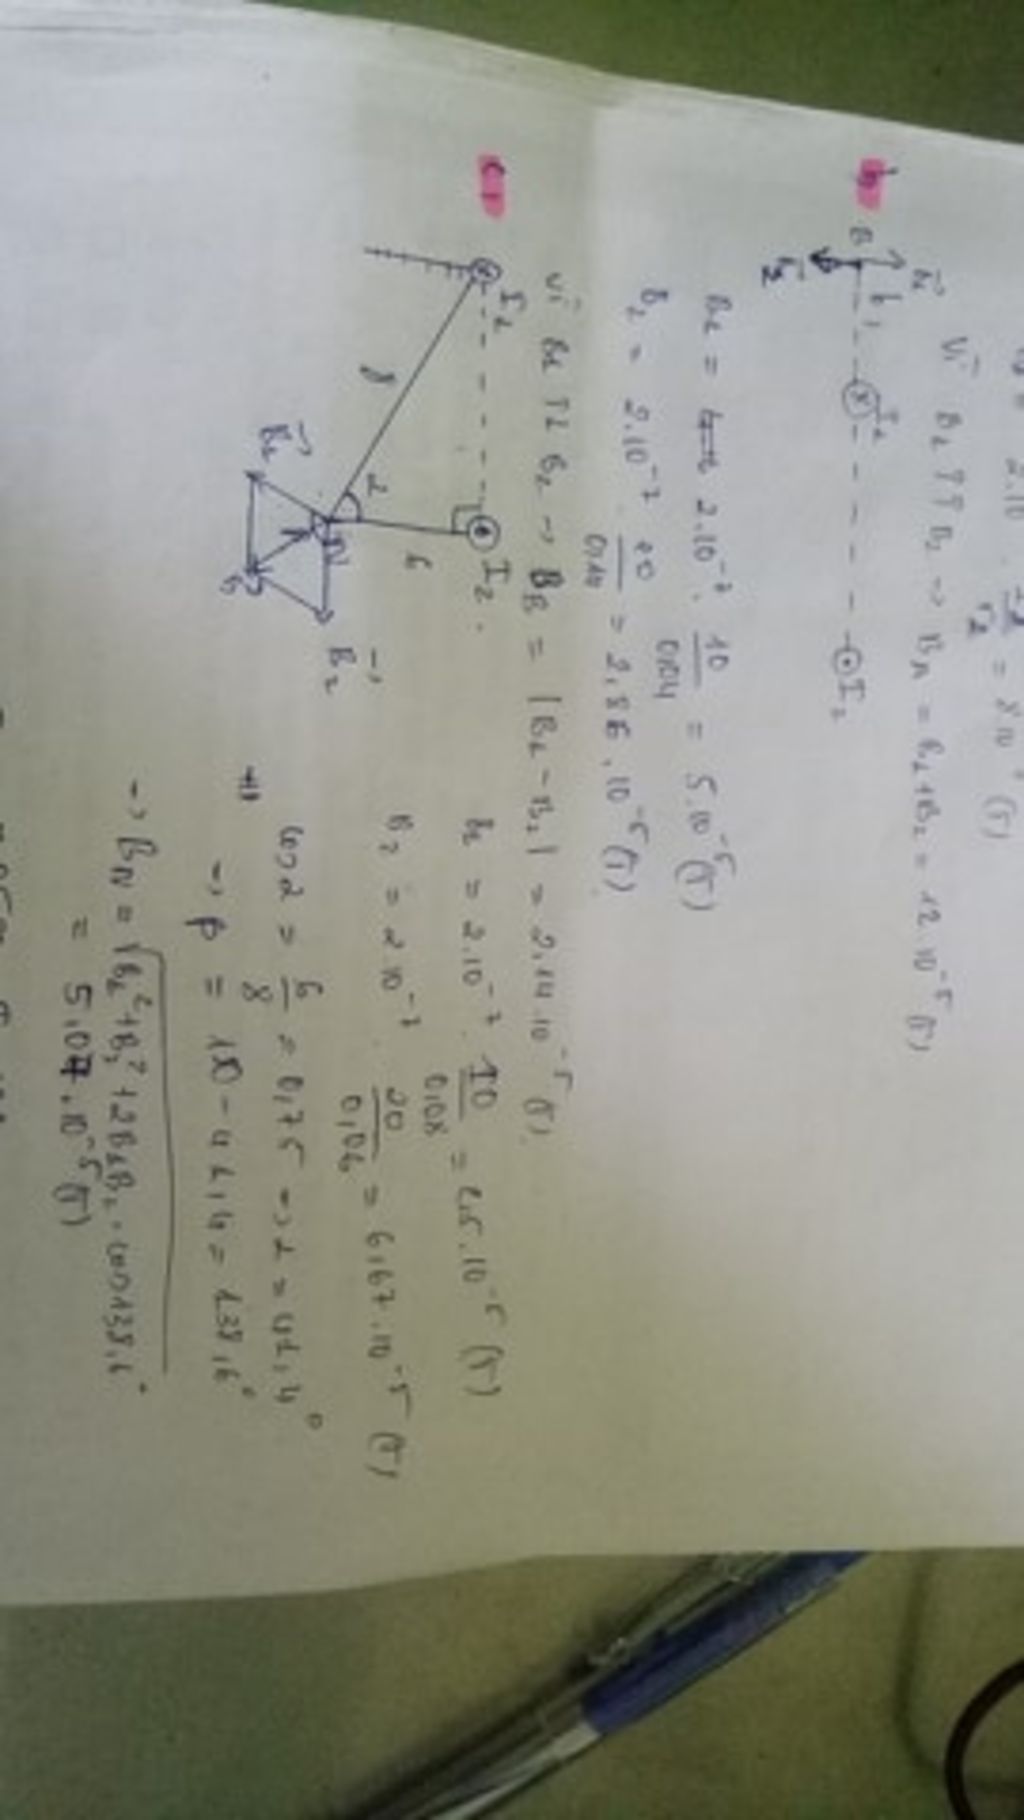 = 2.10
I2
r2
= 8.10 (T)
Vì B1 ↑↑ B2 → BA = B1 + B2 = 12.10⁻⁵ (T)
b)
B1
B
4
I1
I2
B2
B1 = 2.10⁻⁷ . 10/0,04 = 5.10⁻⁵ (T)
B2 = 2.10⁻⁷ . 20/0,14 = 2,86.10⁻⁵ (T)
Vì B1 ↑↓ B2 → BB = |B1 - B2| = 2,14.10⁻⁵ (T)
c)
I1
I2
8
α
6
N
B1
B2
B
B1 = 2.10⁻⁷ . 10/0,08 = 2,5.10⁻⁵ (T)
B2 = 2.10⁻⁷ . 20/0,06 = 6,67.10⁻⁵ (T)
cos α = 6/8 = 0,75 → α = 41,4°
→ β = 180 - 41,4 = 138,6°
→ BN = √B1² + B2² + 2B1B2.cos138,6°
= 5,07.10⁻⁵ (T)